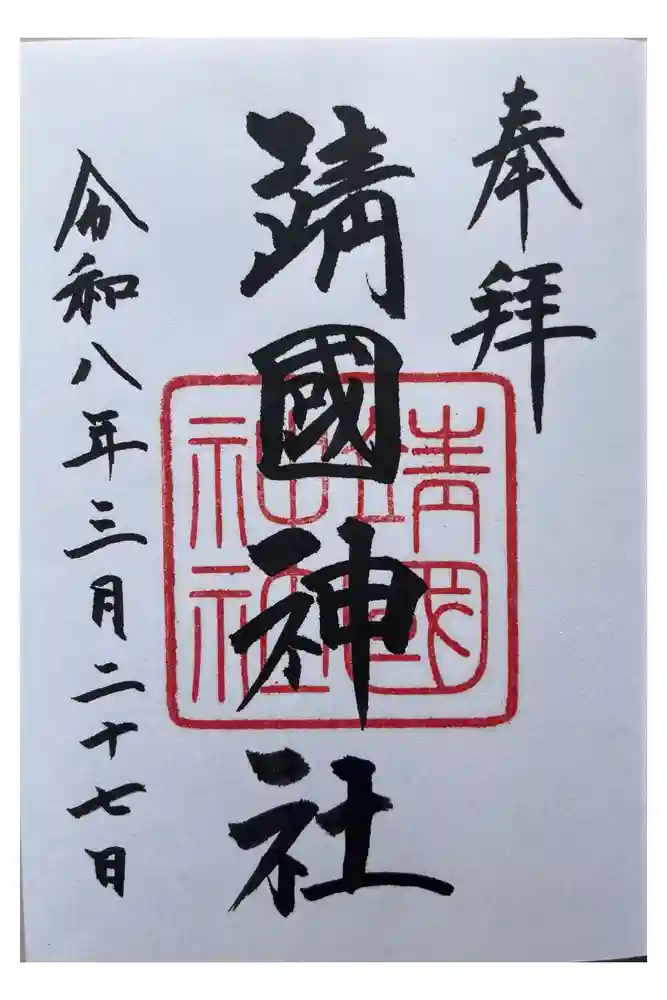 奉拝
靖國神社
靖國
神社
令和八年三月二十七日